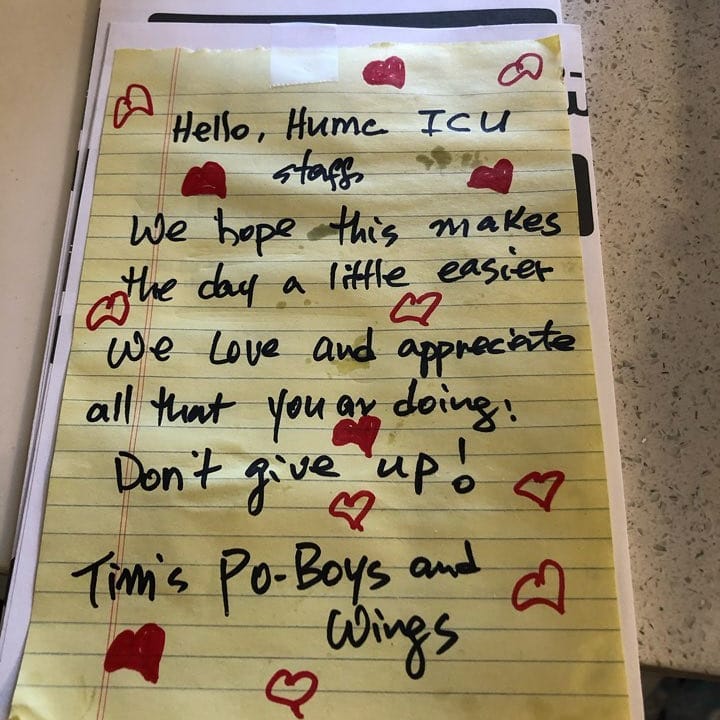 Hello, Humc ICU
staff
We hope this makes
the day a little easier
We Love and appreciate
all that you ar doing!
Don't give up!
Tim's Po-Boys and
Wings